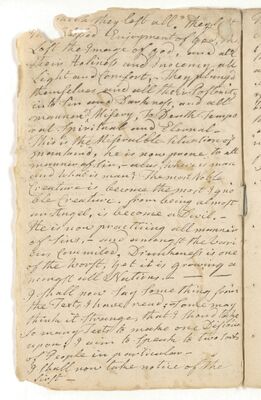 they lost all. They
Enjoyment of god,
Lost the Image of god, and all
their Holiness and Inocency, all
Light and Comfort, They plung'd
themselves and all their Posterity
into Sin and Darkness, and all
manner of Misery, To Death Tempo
ral Spiritual and Eternal
This is the Miserable Situation of
mankind, he is now prone to all
manner of Sin
and What is man? The most Noble
Creature is become the most Igno
ble Creature, from being almost
an Angel, is become a Devil. —
He is now practicing all mannir
of Sins, — and amongst the vari
ous Commited, Drunkenness is one
of the Worst, yet it is growing a
mongst all Nations. —
I Shall now Say Some thing from
the Texts I have read, Some may
think it Strange, that I should take
So many Texts to make one Discourse
upon, I aim to Speak to two Sorts
of People in particular —
I Shall now take notice of the
first —